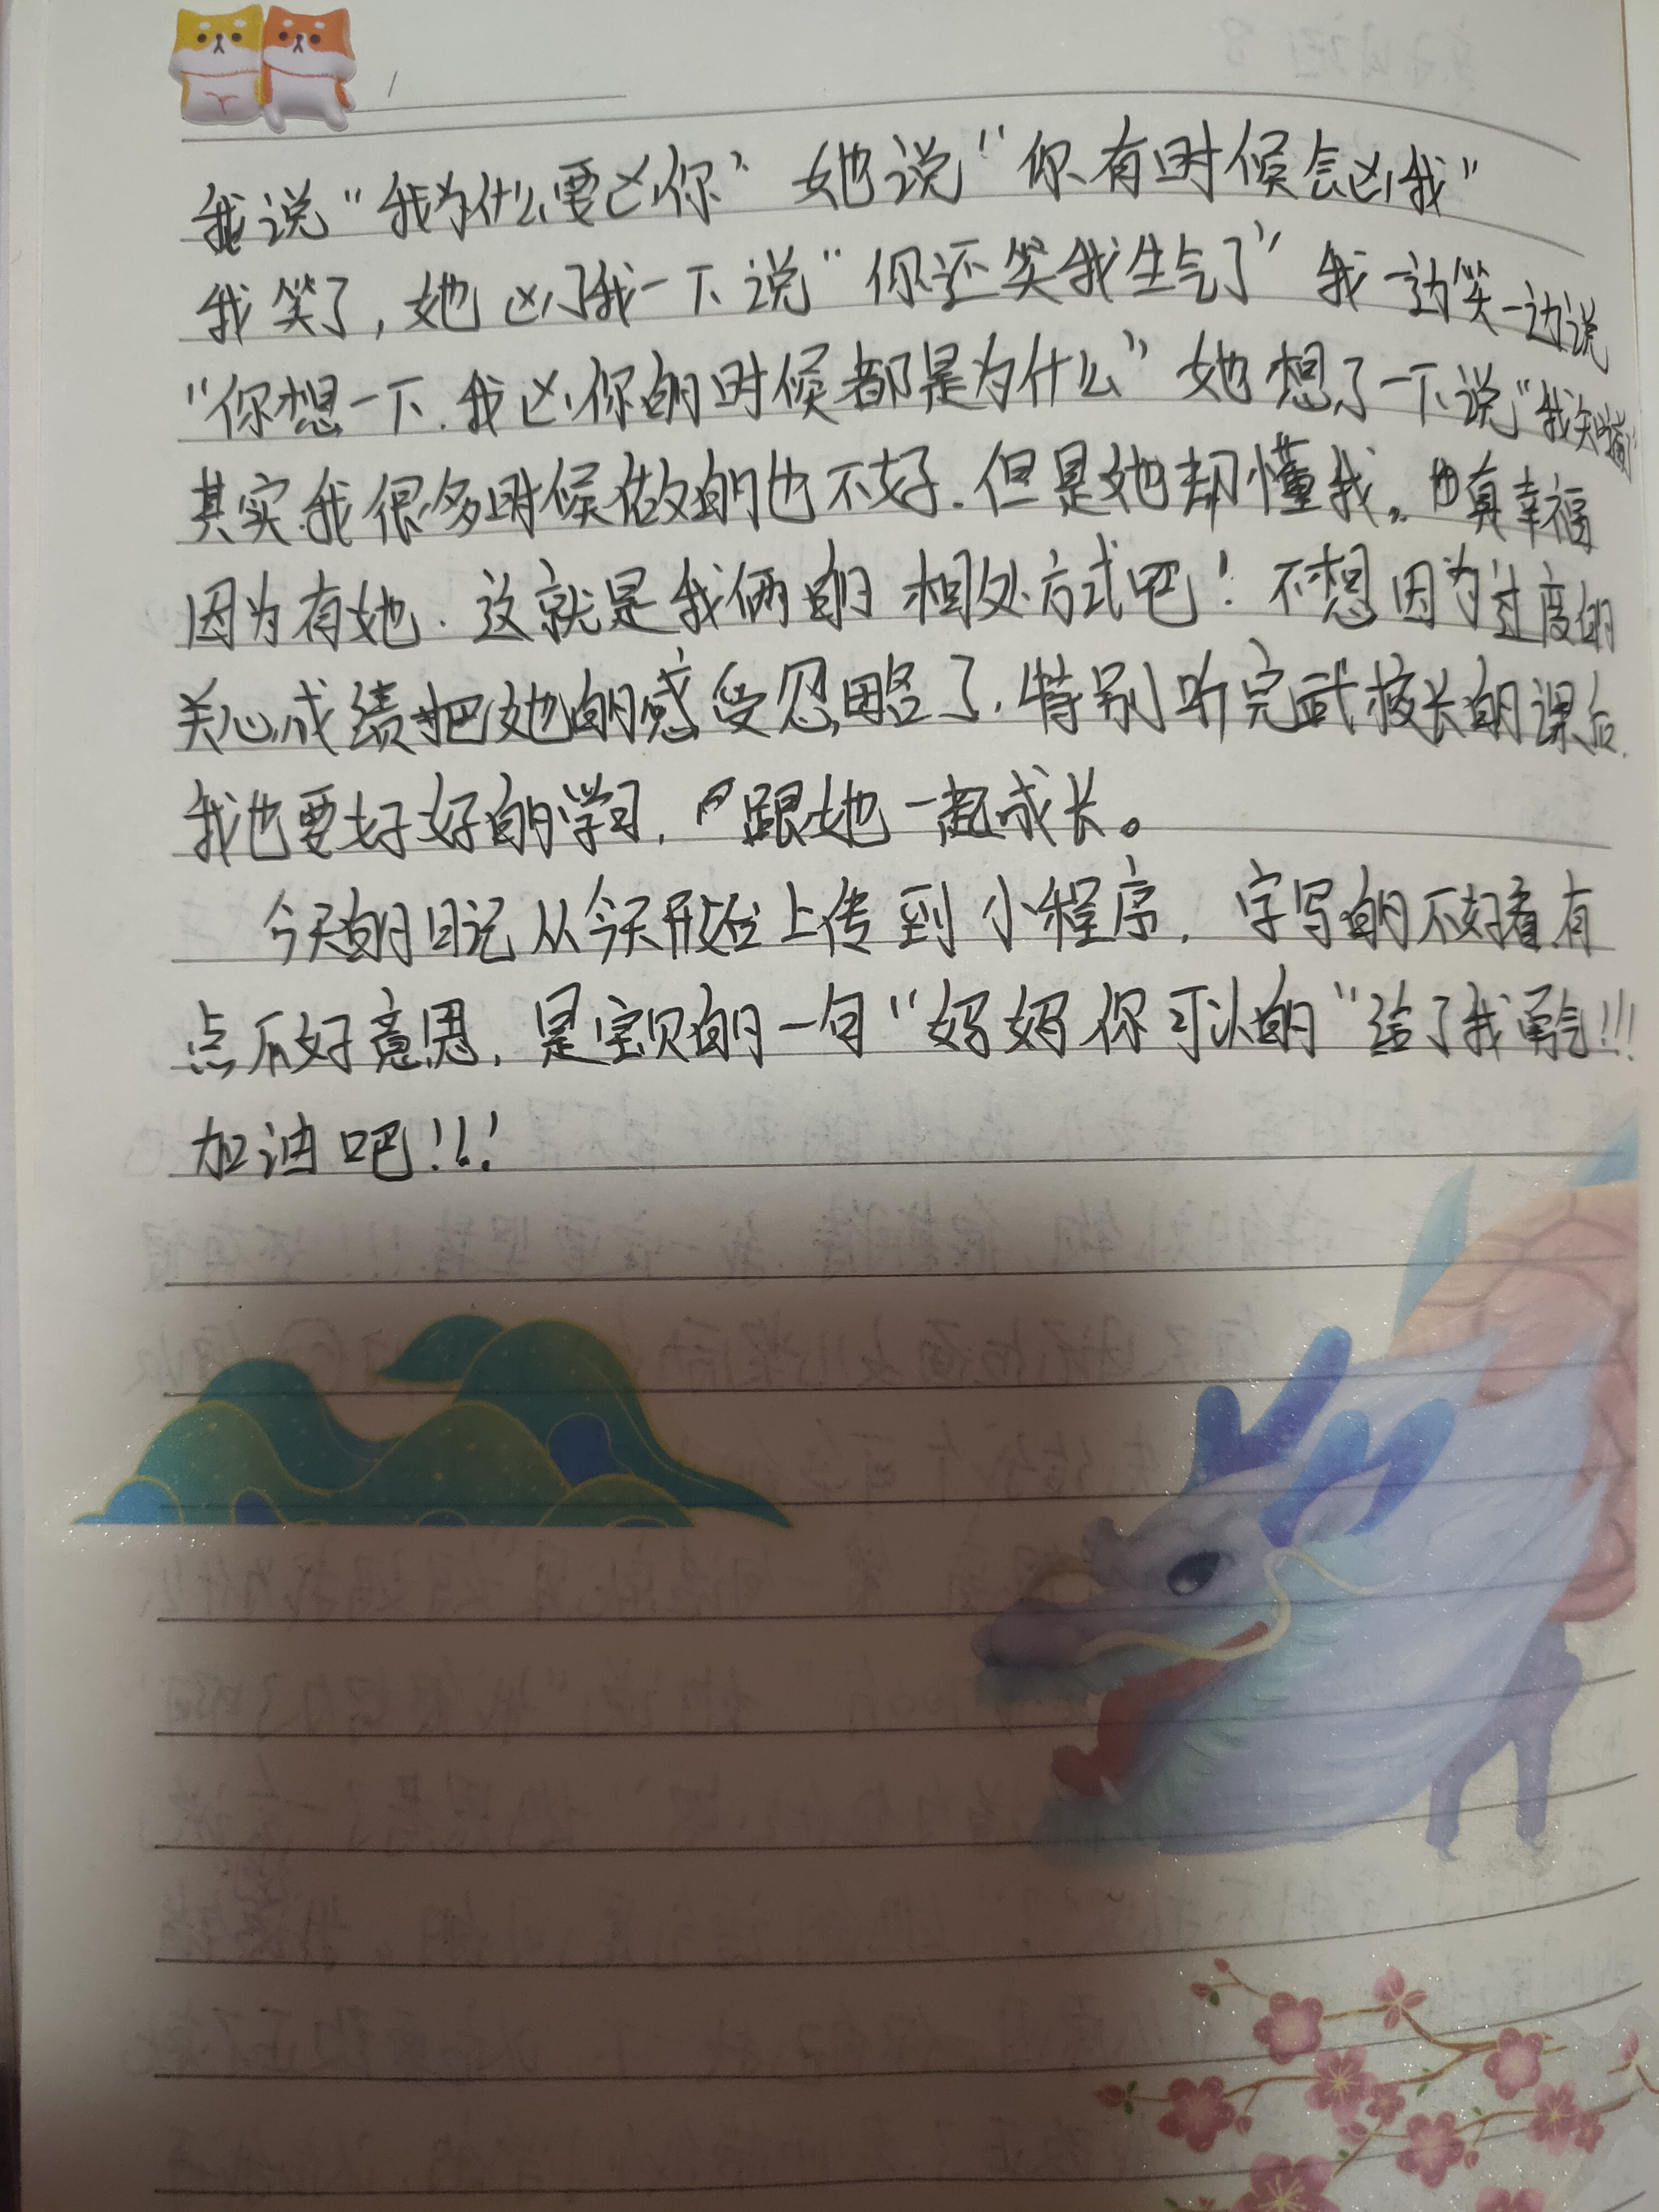 我说“我为什么要凶你”她说“你有时候会凶我”
我笑了,她凶了我一下说“你还笑我生气了”我一边笑一边说
“你想一下.我凶你的时候都是为什么”她想了一下说“我知道”
其实我很多时候做的也不好.但是她却懂我。真幸福
因为有她.这就是我俩的相处方式吧!不想因为过度的
关心成绩把她的感受忽略了.特别听完武校长的课后.
我也要好好的学习,跟她一起成长。
今天的日记从今天开始上传到小程序,字写的不好看.有
点不好意思,是宝贝的一句“妈妈你可以的”给了我勇气!!!
加油吧!!!